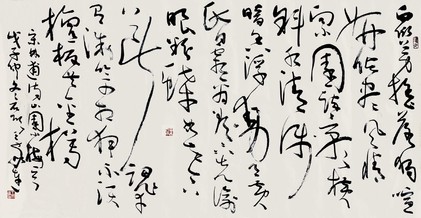 众芳摇落独暄
妍占尽风情
向小园疏影横
斜水清浅
暗香浮动月黄
昏霜禽欲下先偷
眼粉蝶如知合
断魂
幸有微吟可相狎不须
檀板共金樽
宋林逋诗山园小梅一首
戊子仲冬